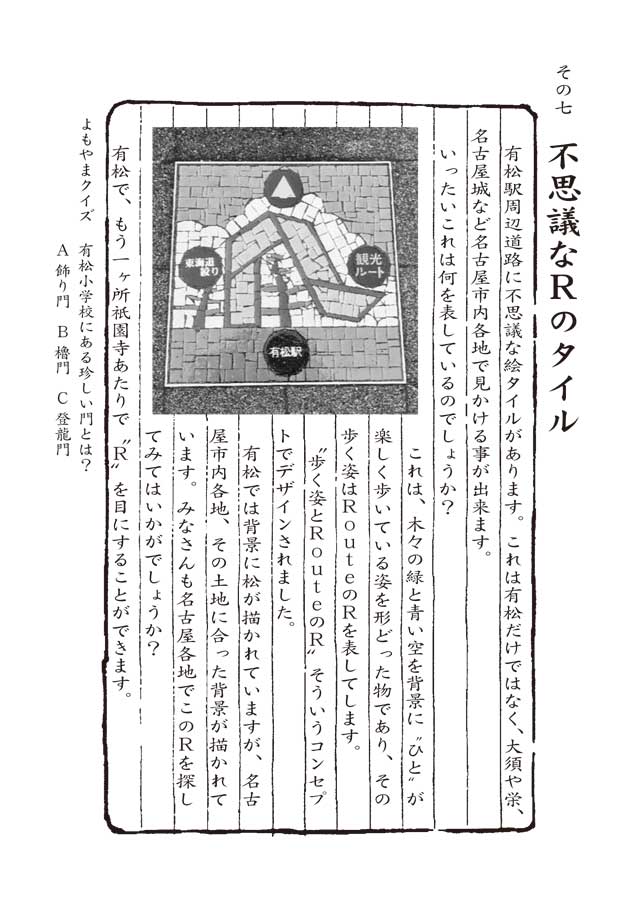 その七
不思議なRのタイル
有松駅周辺道路に不思議な絵タイルがあります。これは有松だけではなく、大須や栄、
名古屋城など名古屋市内各地で見かける事が出来ます。
いったいこれは何を表しているのでしょうか?
観光
ルート
東海道
絞り
有松駅
これは、木々の緑と青い空を背景に〝ひと〟が
楽しく歩いている姿を形どった物であり、その
歩く姿はRouteのRを表してします。
〝歩く姿とRouteのR〟そういうコンセプ
トでデザインされました。
有松では背景に松が描かれていますが、名古
屋市内各地、その土地に合った背景が描かれて
います。みなさんも名古屋各地でこのRを探し
てみてはいかがでしょうか?
有松で、もう一ヶ所祇園寺あたりで〝R〟を目にすることができます。
よもやまクイズ 有松小学校にある珍しい門とは?
A 飾り門 B 櫓門 C 登龍門